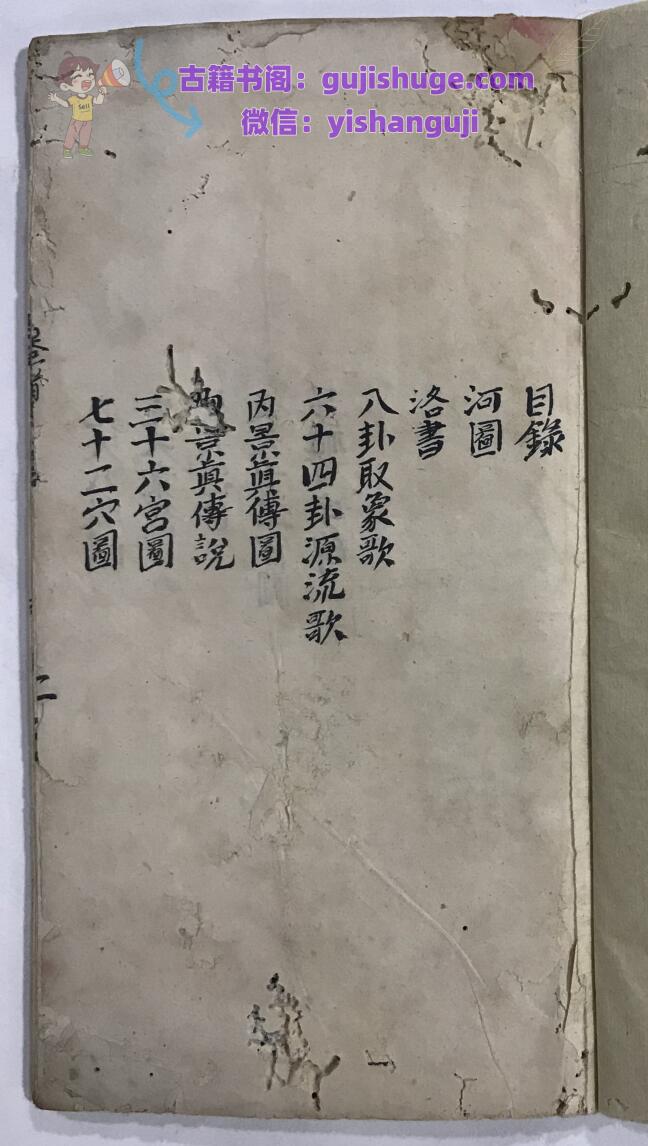 古籍书阁：gujishuge.com
微信：yishanguji
Sell
目錄
河圖
洛書
八卦取象歌
六十四卦源流歌
内景眞傳圖
景眞傳說
三十六宮圖
七十二穴圖
二